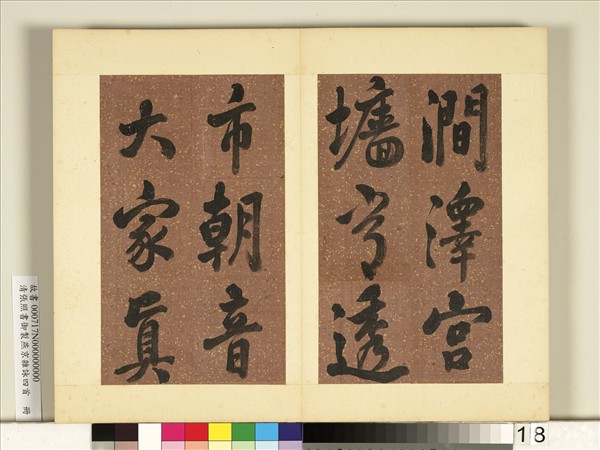 澗澤宮
墻透
市朝音
大家真
故書 000717N000000000
清張照書御製燕京雜詠四首 冊
18